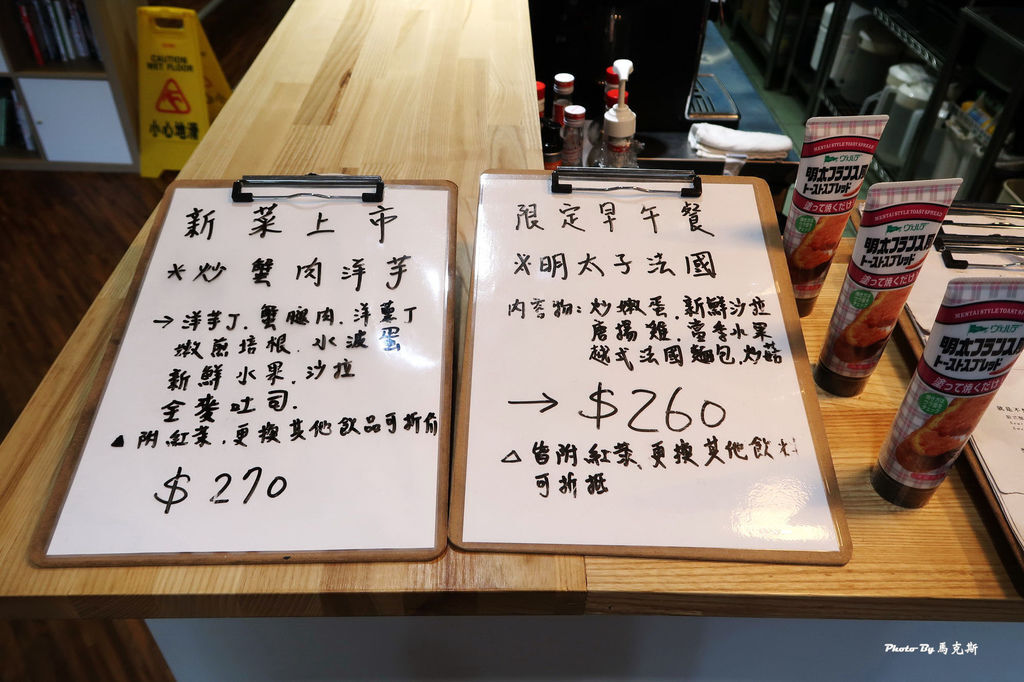 CAUTION
WET FLOOR
小心地滑
新菜上市
※炒蟹肉洋芋
→洋芋丁.蟹腿肉.洋蔥丁
嫩煎培根.水波蛋
新鮮水果.沙拉
全麥吐司.
▲附紅茶,更換其他飲品可折價
$270
限定早午餐
※明太子法國
內容物:炒嫩蛋.新鮮沙拉
唐揚雞.當季水果
越式法國麵包.炒菇
→ $260
△皆附紅茶,更換其他飲料
可折抵
MENTAI STYLE TOAST SPREAD
ヴェルデ
明太フランス風
トーストスプレッド
塗って焼くだけ
MENTAI STYLE TOAST SPREAD
ヴェルデ
明太フランス風
トーストスプレッド
塗って焼くだけ
MENTAI STYLE TOAST SPREAD
ヴェルデ
明太フランス
トーストスプレッド
塗って焼くだけ
Photo By 馬克斯